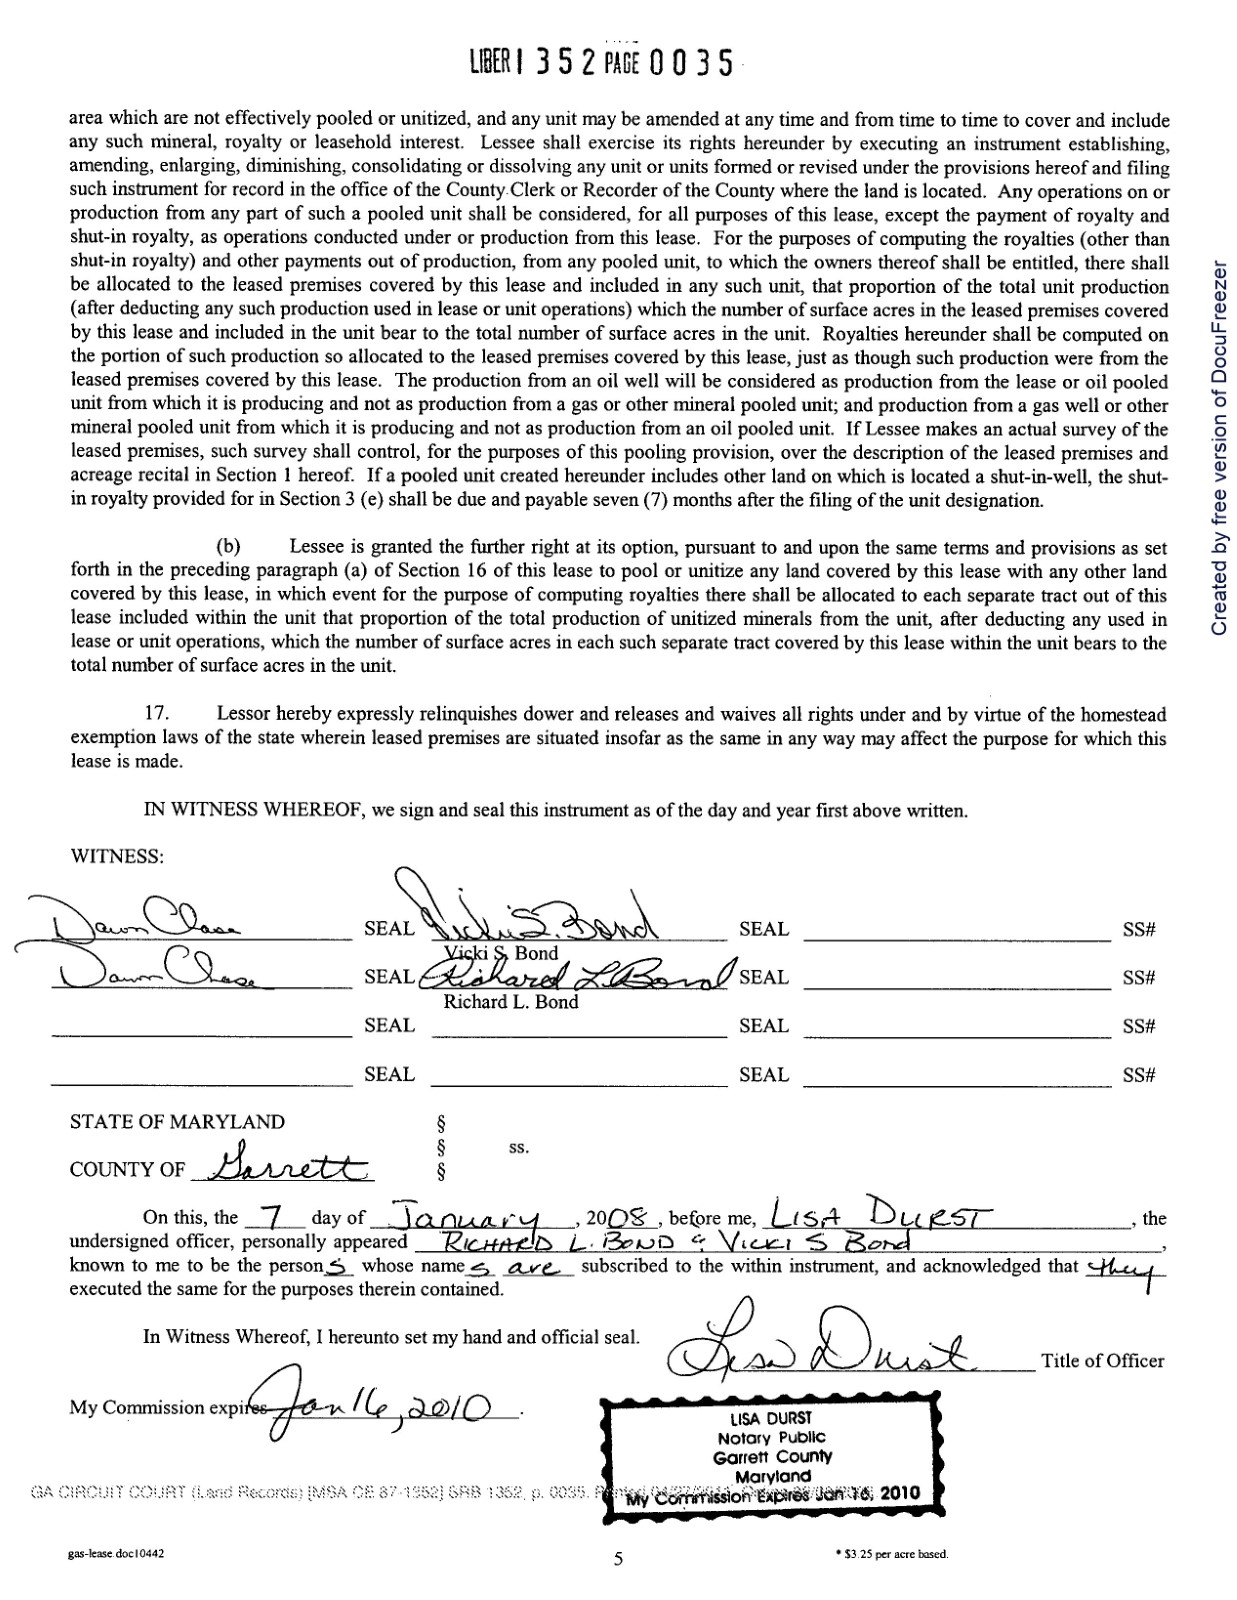 LIBER 1 3 5 2 PAGE 0 0 3 5
area which are not effectively pooled or unitized, and any unit may be amended at any time and from time to time to cover and include
any such mineral, royalty or leasehold interest. Lessee shall exercise its rights hereunder by executing an instrument establishing,
amending, enlarging, diminishing, consolidating or dissolving any unit or units formed or revised under the provisions hereof and filing
such instrument for record in the office of the County Clerk or Recorder of the County where the land is located. Any operations on or
production from any part of such a pooled unit shall be considered, for all purposes of this lease, except the payment of royalty and
shut-in royalty, as operations conducted under or production from this lease. For the purposes of computing the royalties (other than
shut-in royalty) and other payments out of production, from any pooled unit, to which the owners thereof shall be entitled, there shall
be allocated to the leased premises covered by this lease and included in any such unit, that proportion of the total unit production
(after deducting any such production used in lease or unit operations) which the number of surface acres in the leased premises covered
by this lease and included in the unit bear to the total number of surface acres in the unit. Royalties hereunder shall be computed on
the portion of such production so allocated to the leased premises covered by this lease, just as though such production were from the
leased premises covered by this lease. The production from an oil well will be considered as production from the lease or oil pooled
unit from which it is producing and not as production from a gas or other mineral pooled unit; and production from a gas well or other
mineral pooled unit from which it is producing and not as production from an oil pooled unit. If Lessee makes an actual survey of the
leased premises, such survey shall control, for the purposes of this pooling provision, over the description of the leased premises and
acreage recital in Section 1 hereof. If a pooled unit created hereunder includes other land on which is located a shut-in-well, the shut-
in royalty provided for in Section 3 (e) shall be due and payable seven (7) months after the filing of the unit designation.
(b) Lessee is granted the further right at its option, pursuant to and upon the same terms and provisions as set
forth in the preceding paragraph (a) of Section 16 of this lease to pool or unitize any land covered by this lease with any other land
covered by this lease, in which event for the purpose of computing royalties there shall be allocated to each separate tract out of this
lease included within the unit that proportion of the total production of unitized minerals from the unit, after deducting any used in
lease or unit operations, which the number of surface acres in each such separate tract covered by this lease within the unit bears to the
total number of surface acres in the unit.
17. Lessor hereby expressly relinquishes dower and releases and waives all rights under and by virtue of the homestead
exemption laws of the state wherein leased premises are situated insofar as the same in any way may affect the purpose for which this
lease is made.
IN WITNESS WHEREOF, we sign and seal this instrument as of the day and year first above written.
WITNESS:
Dawn Chase SEAL Vicki S. Bond SEAL SS#
Vicki S. Bond
Dawn Chase SEAL Richard L. Bond SEAL SS#
Richard L. Bond
SEAL SEAL SS#
SEAL SEAL SS#
STATE OF MARYLAND §
§ ss.
COUNTY OF Garrett §
On this, the 7 day of January, 2008, before me, LISA DURST, the
undersigned officer, personally appeared RICHARD L. BOND & VICKI S Bond,
known to me to be the persons whose names are subscribed to the within instrument, and acknowledged that they
executed the same for the purposes therein contained.
In Witness Whereof, I hereunto set my hand and official seal.
Lisa Durst Title of Officer
My Commission expires Jan 16, 2010.
LISA DURST
Notary Public
Garrett County
Maryland
My Commission Expires Jan 16, 2010
GA CIRCUIT COURT (Land Records) [MSA CE 87-1352] SRB 1352, p. 0035.
gas-lease.doc10442
5
* $3.25 per acre based.
Created by free version of DocuFreezer